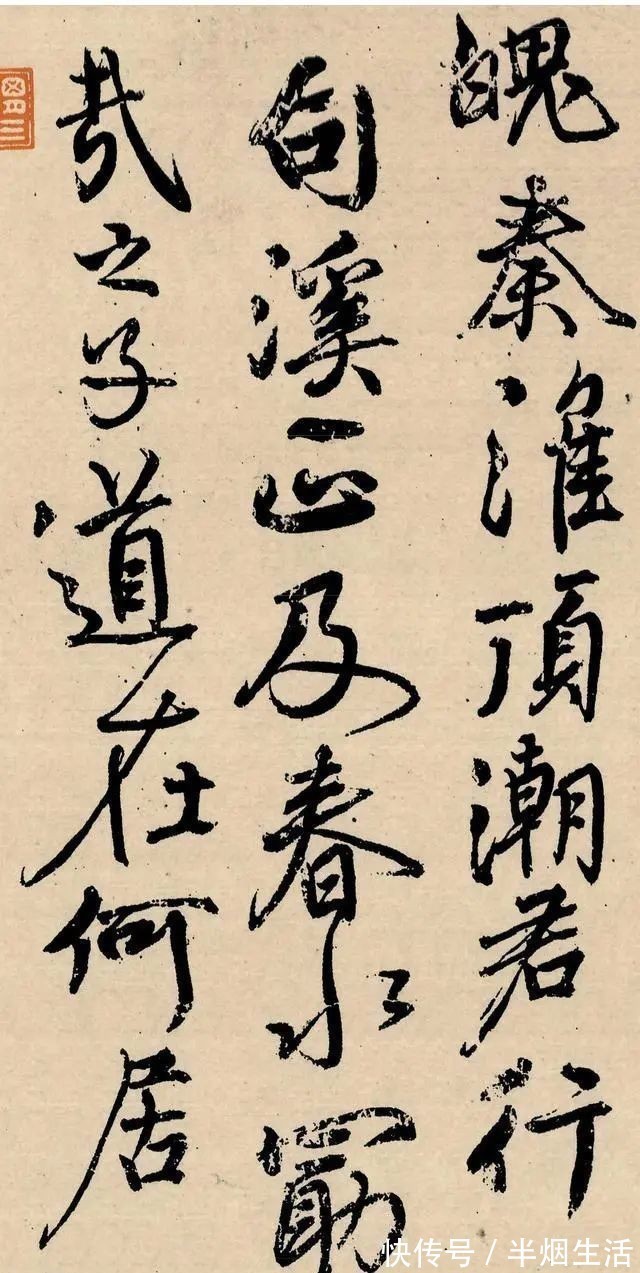 魄秦淮頂潮君行
句溪正及春水勗
哉之子道在何居
快传号 / 半烟生活